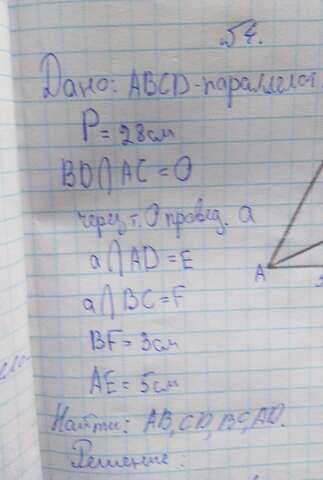 √54.
Дано: ABCD-параллелог
P = 28 см
BD ∩ AC = O
через т. O провед. a
a ∩ AD = E
a ∩ BC = F
A
BF = 3 см
AE = 5 см
Найти: AB, CD, BC, AD.
Решение: